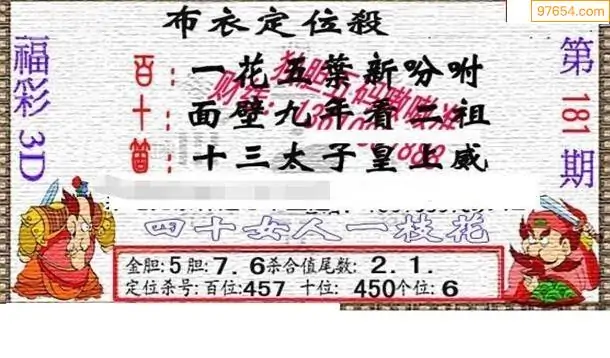 97654.com
布衣定位殺
福彩3D
第181期
百:一花五葉新吩咐
十:面壁九年看二祖
個:十三太子皇上威
四十女人一枝花
金胆:5胆:7.6杀合值尾数:2.1.
定位杀号:百位:457 十位:450个位:6